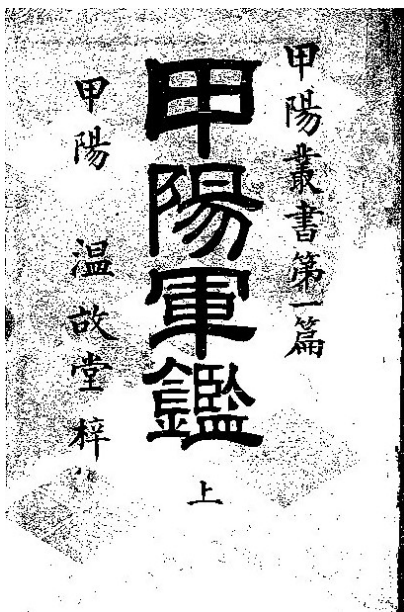 甲陽叢書第一篇
甲陽軍鑑 上
甲陽 温故堂梓